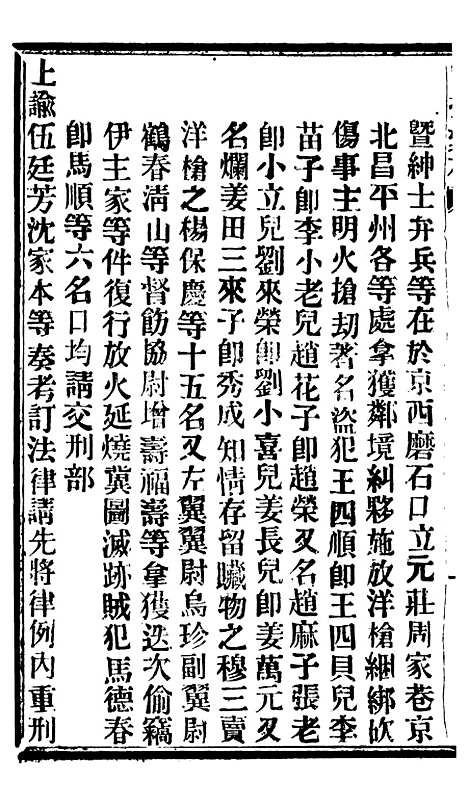 暨紳士弁兵等在於京西磨石口立元莊周家巷京
北昌平州各等處拿獲鄰境糾夥施放洋槍綑綁砍
傷事主明火搶刧著名盜犯王四順卽王四貝兒李
苗子卽李小老兒趙花子卽趙榮又名趙麻子張老
卽小立兒劉來榮卽劉小喜兒姜長兒卽姜萬元又
名爛姜田三來子卽秀成知情存留贓物之穆三賣
洋槍之楊保慶等十五名又左翼翼尉烏珍副翼尉
鶴春淸山等督飭協尉增壽福壽等拿獲迭次偷竊
伊主家等件復行放火延燒冀圖滅跡賊犯馬德春
卽馬順等六名口均請交刑部
上諭伍廷芳沈家本等奏考訂法律請先將律例內重刑